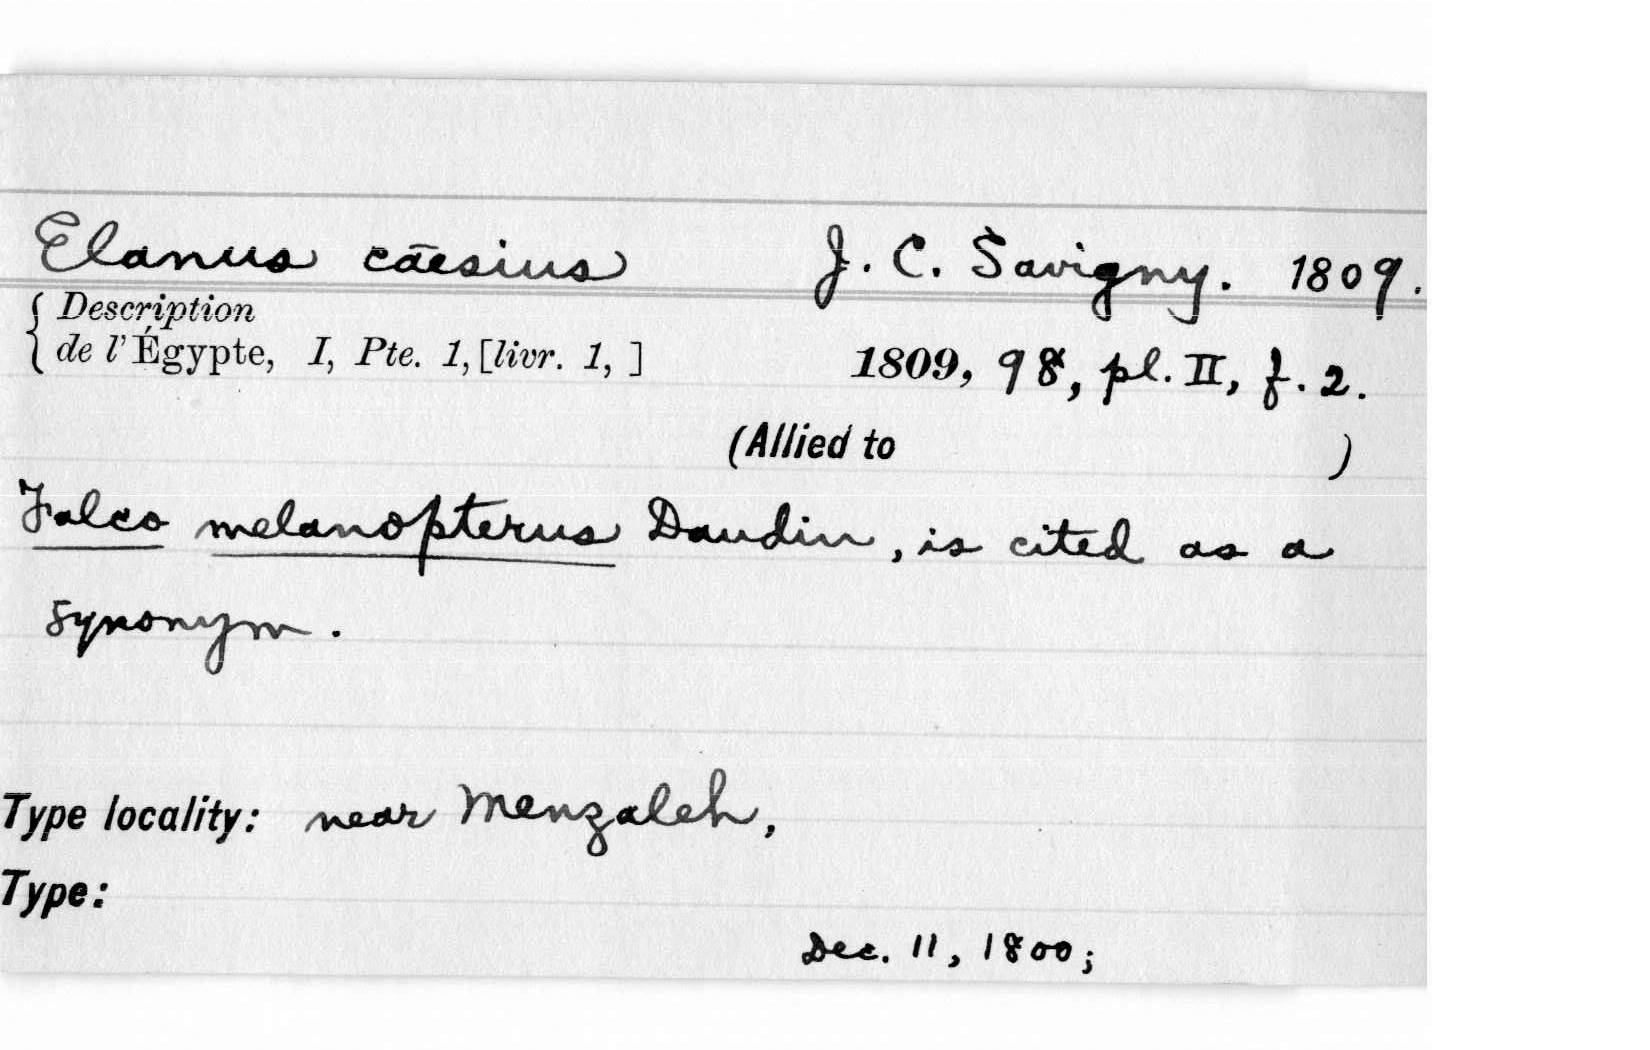 Elanus cāesius J. C. Savigny. 1809.
{ Description
de l'Égypte, I, Pte. 1, [livr. 1, ] 1809, 98, pl. II, f. 2.
(Allied to )
Falco melanopterus Daudin, is cited as a
synonym.
Type locality: near Menzaleh,
Type:
Dec. 11, 1800;